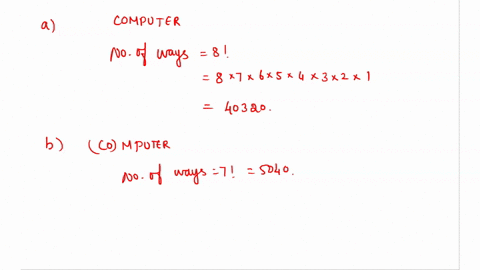 a) COMPUTER
No. of ways = 8!
= 8 × 7 × 6 × 5 × 4 × 3 × 2 × 1
= 40320.
b) (CO) MPUTER
No. of ways = 7! = 5040.